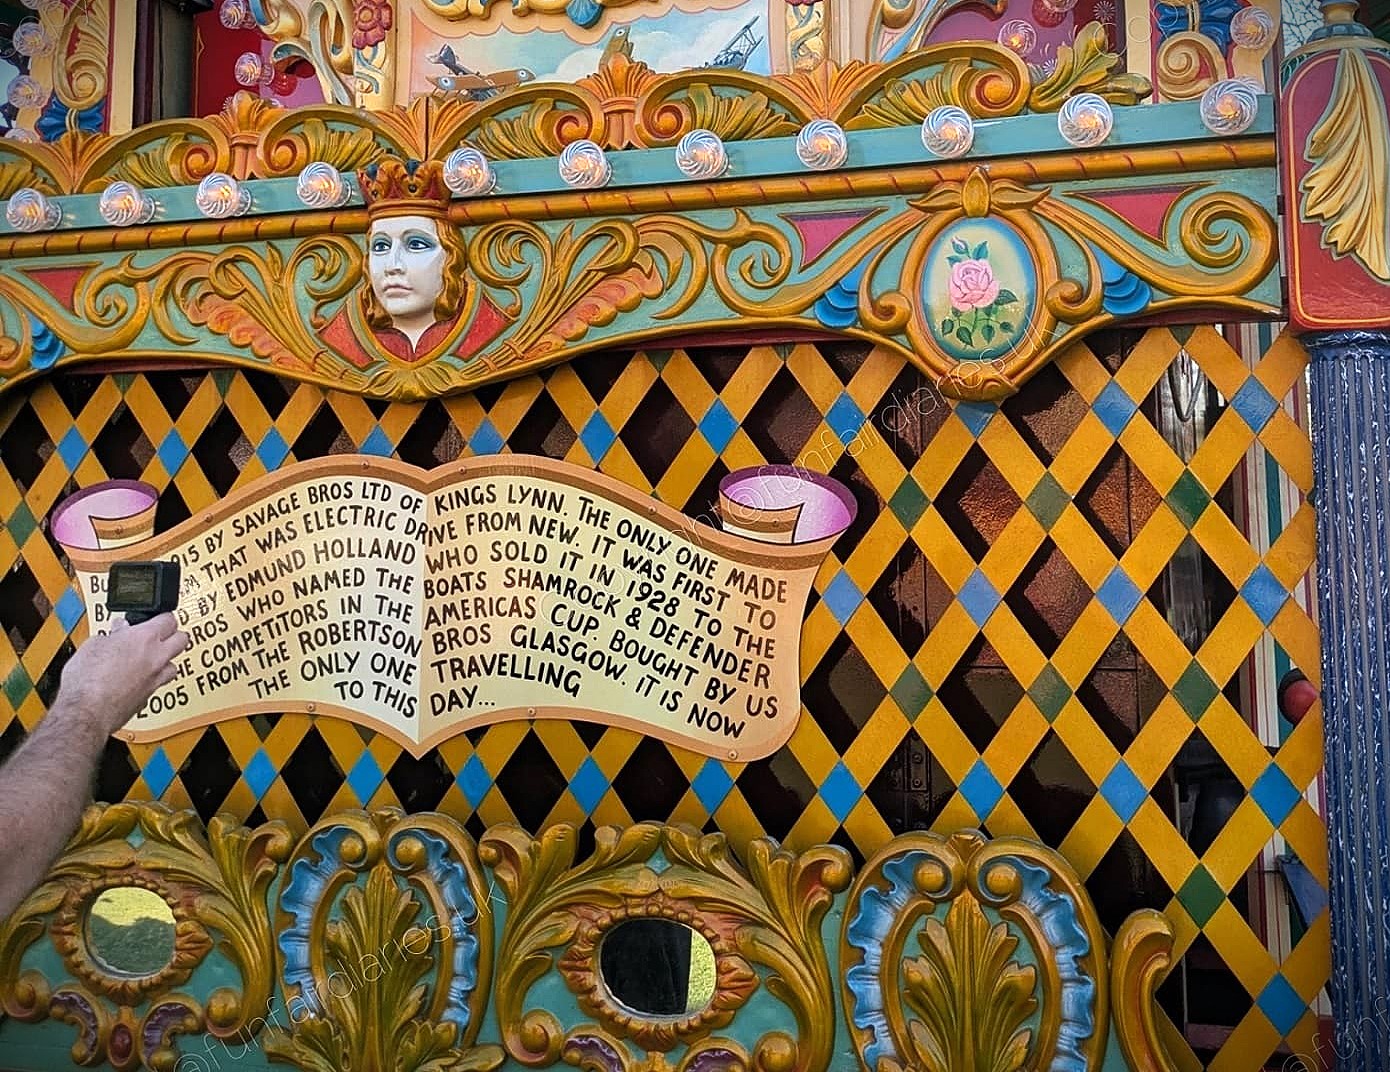 915 BY SAVAGE BROS LTD OF KINGS LYNN. THE ONLY ONE MADE
THAT WAS ELECTRIC DRIVE FROM NEW. IT WAS FIRST TO
BY EDMUND HOLLAND WHO SOLD IT IN 1928 TO THE
BROS WHO NAMED THE BOATS SHAMROCK & DEFENDER
THE COMPETITORS IN THE AMERICAS CUP. BOUGHT BY US
2005 FROM THE ROBERTSON BROS GLASGOW. IT IS NOW
THE ONLY ONE TRAVELLING
TO THIS DAY...
@funfairdiaries.uk